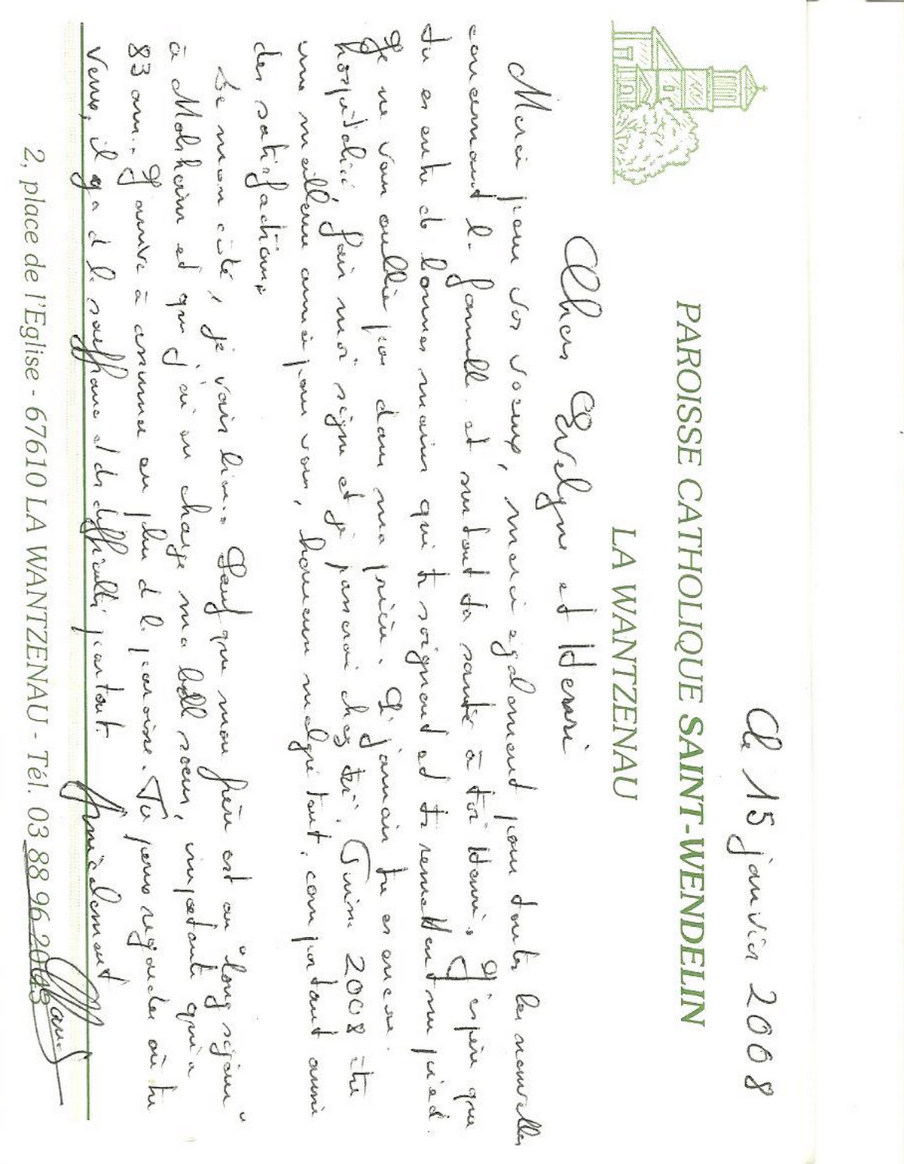 Le 15 janvier 2008
PAROISSE CATHOLIQUE SAINT-WENDELIN
LA WANTZENAU
Chers Evelyne et Henri
Merci pour vos voeux, merci également pour toutes les nouvelles
concernant la famille et surtout ta santé à toi Henri. J'espère que
tu es entre de bonnes mains qui te soignent et te remettent sur pied.
Je ne vous oublie pas dans ma prière. Si jamais tu es encore
hospitalisé, fais moi signe et je passerai chez toi. Puisse 2008 être
une meilleure année pour vous, heureuse malgré tout, comportant aussi
des satisfactions.
De mon côté, je vais bien. Sauf que mon frère est en "long séjour"
à Molsheim et que j'ai en charge ma belle soeur, impotente qui a
83 ans. J'arrive à assumer en plus de la paroisse. Tu peux regarder où tu
veux, il y a de la souffrance et des difficultés partout. Amicalement
2, place de l'Eglise - 67610 LA WANTZENAU - Tél. 03 88 96 20 43